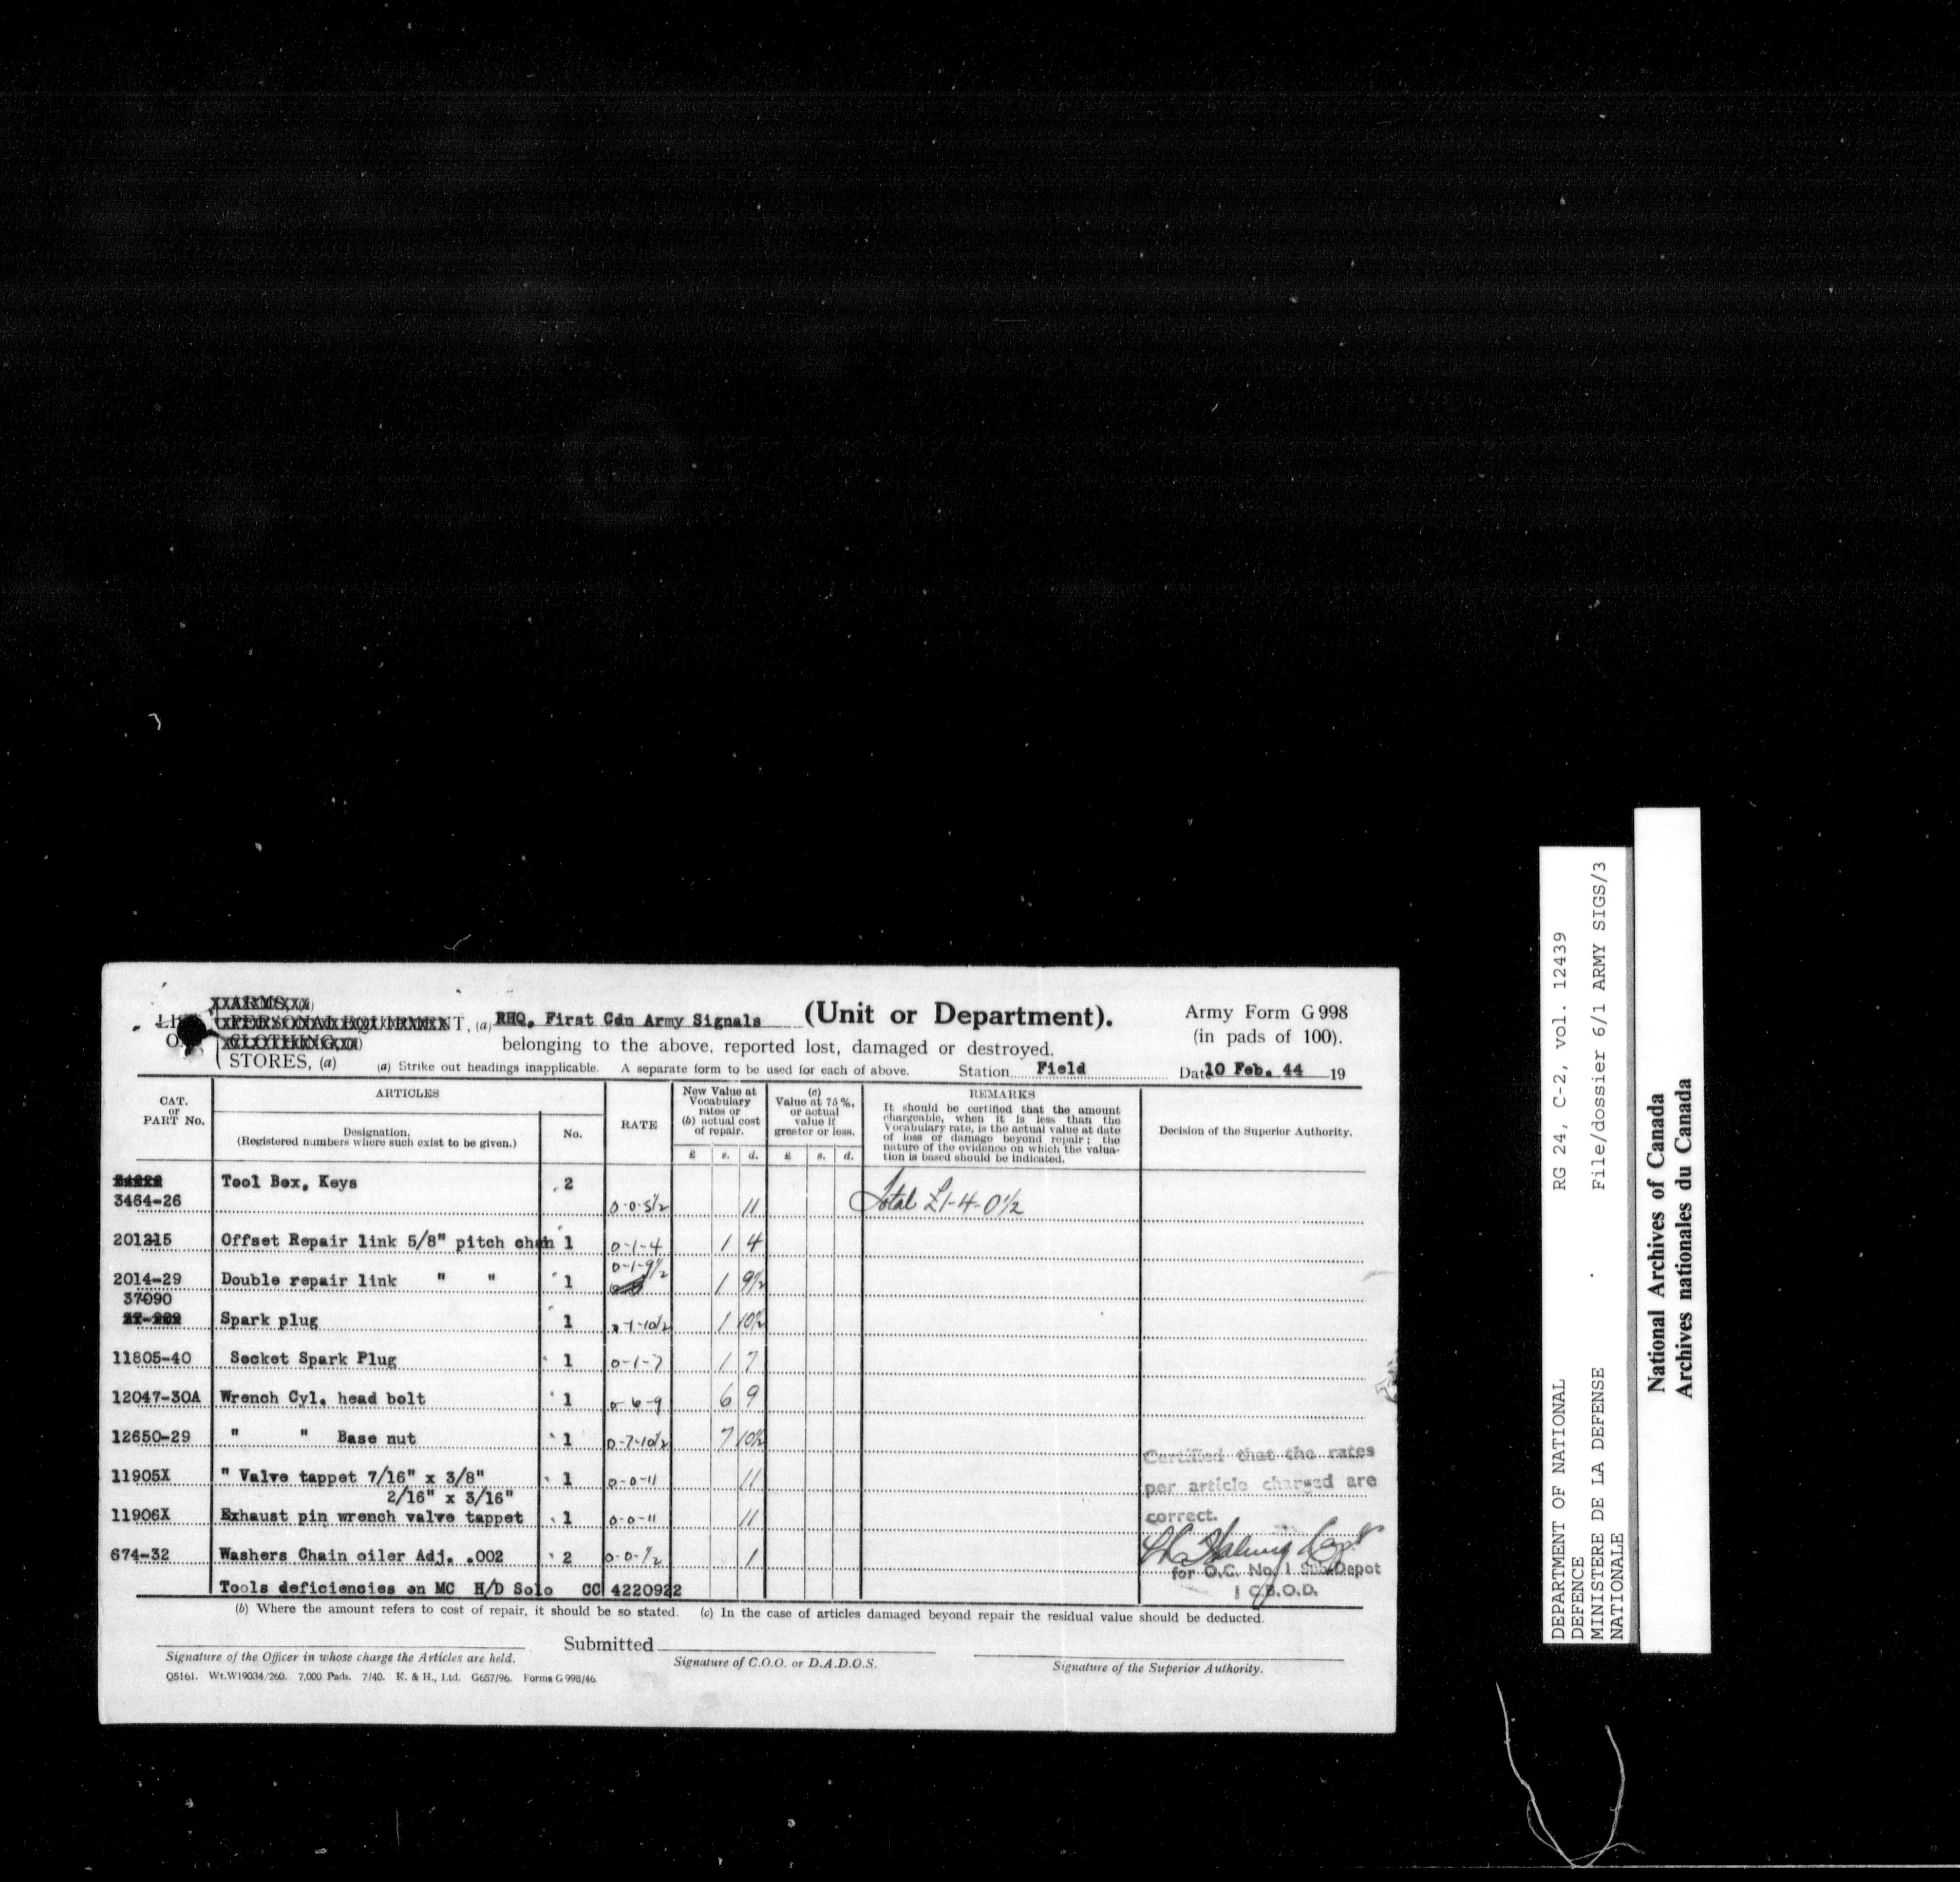 ARMS, (a)
PERSONAL EQUIPMENT, (a) RHQ, First Cdn Army Signals (Unit or Department). Army Form G 998
CLOTHING, belonging to the above, reported lost, damaged or destroyed. (in pads of 100).
STORES, (a) (a) Strike out headings inapplicable. A separate form to be used for each of above. Station Field Date 10 Feb. 44 19
CAT. or PART No.
ARTICLES
Designation.
(Registered numbers where such exist to be given.)
No.
RATE
New Value at
Vocabulary
rates or
(b) actual cost
of repair.
£ s. d.
(c)
Value at 75%,
or actual
value if
greater or less.
£ s. d.
REMARKS
It should be certified that the amount
chargeable, when it is less than the
Vocabulary rate, is the actual value at date
of loss or damage beyond repair; the
nature of the evidence on which the valua-
tion is based should be indicated.
Decision of the Superior Authority.
Tool Box, Keys 2
3464-26 0-0-5½ 11 Total £1-4-0½
201215 Offset Repair link 5/8" pitch chan 1 0-1-4 1 4
2014-29 Double repair link " " 1 0-1-9½ 1 9½
37090
Spark plug 1 0-1-10½ 1 10½
11805-40 Socket Spark Plug 1 0-1-7 1 7
12047-30A Wrench Cyl. head bolt 1 0-6-9 6 9
12650-29 " " Base nut 1 0-7-10½ 7 10½
11905X " Valve tappet 7/16" x 3/8" 1 0-0-11 11
2/16" x 3/16"
11906X Exhaust pin wrench valve tappet 1 0-0-11 11
674-32 Washers Chain oiler Adj. .002 2 0-0-½ 1
Tools deficiencies on MC H/D Solo CC 4220922
Certified that the rates
per article charged are
correct.
Capt
for O.C. No. 1 Sub Depot
1 C.B.O.D.
(b) Where the amount refers to cost of repair, it should be so stated. (c) In the case of articles damaged beyond repair the residual value should be deducted.
Submitted
Signature of the Officer in whose charge the Articles are held. Signature of C.O.O. or D.A.D.O.S. Signature of the Superior Authority.
Q5161. Wt.W19034/260. 7,000 Pads. 7/40. K. & H., Ltd. G657/96. Forms G 998/46
DEPARTMENT OF NATIONAL RG 24, C-2, vol. 12439
DEFENCE
MINISTERE DE LA DEFENSE File/dossier 6/1 ARMY SIGS/3
NATIONALE
National Archives of Canada
Archives nationales du Canada